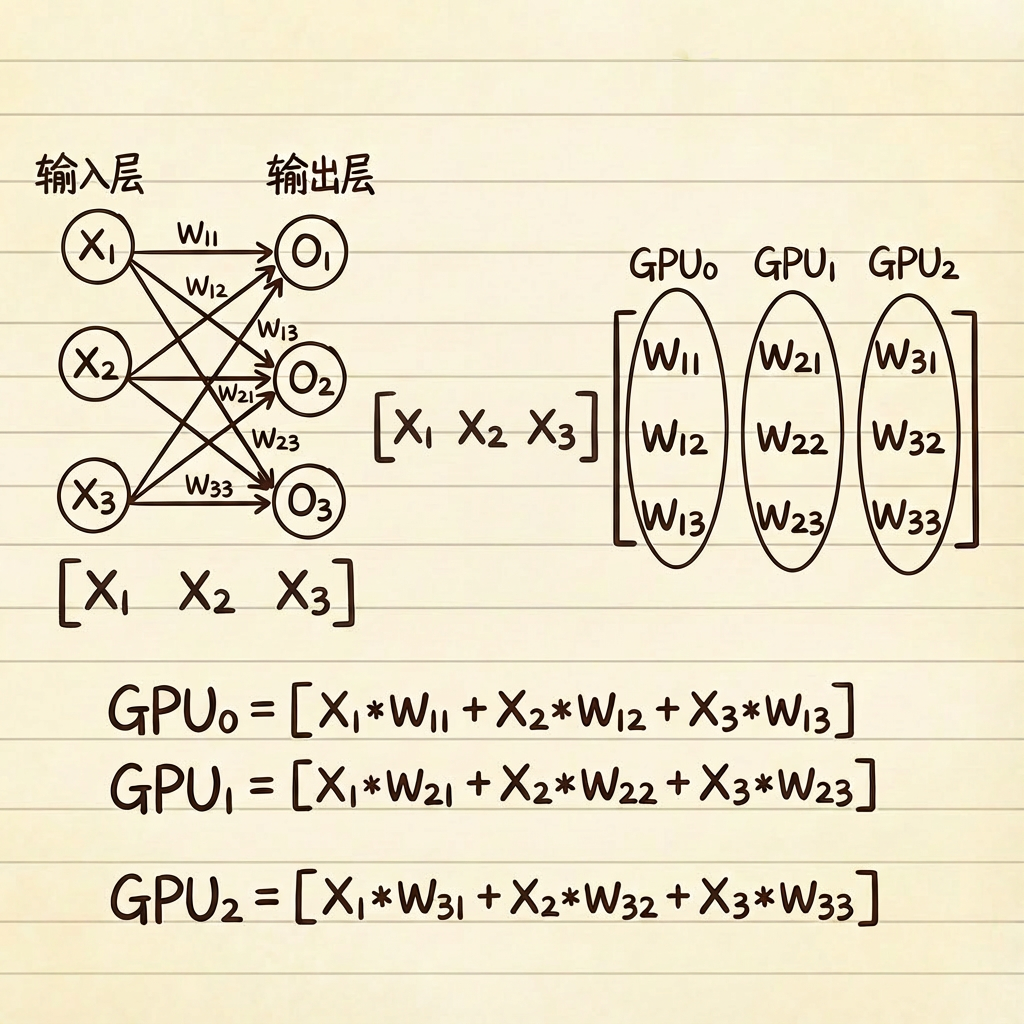 输入层 输出层
X₁ W₁₁ O₁
W₁₂
W₁₃
X₂ O₂
W₂₁
W₂₃
X₃ W₃₃ O₃
[X₁ X₂ X₃]
GPU₀ GPU₁ GPU₂
W₁₁ W₂₁ W₃₁
[X₁ X₂ X₃] W₁₂ W₂₂ W₃₂
W₁₃ W₂₃ W₃₃
GPU₀ = [X₁*W₁₁ + X₂*W₁₂ + X₃*W₁₃]
GPU₁ = [X₁*W₂₁ + X₂*W₂₂ + X₃*W₂₃]
GPU₂ = [X₁*W₃₁ + X₂*W₃₂ + X₃*W₃₃]